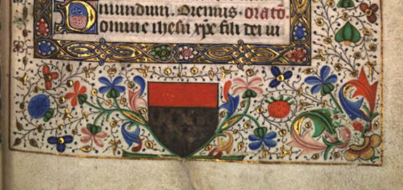 mundum. Oremus. Orato.
Domine ihesu xpe fili dei ui